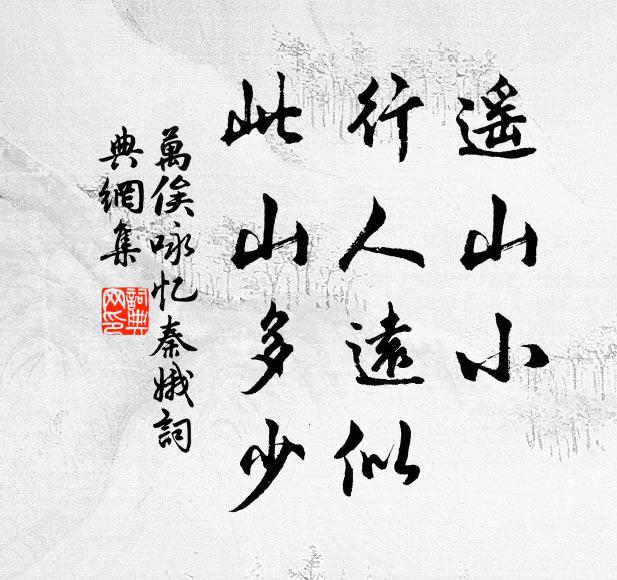 遥山小
行人遠似
此山多少
萬俟咏忆秦娥詞
典網集
詞典
网印